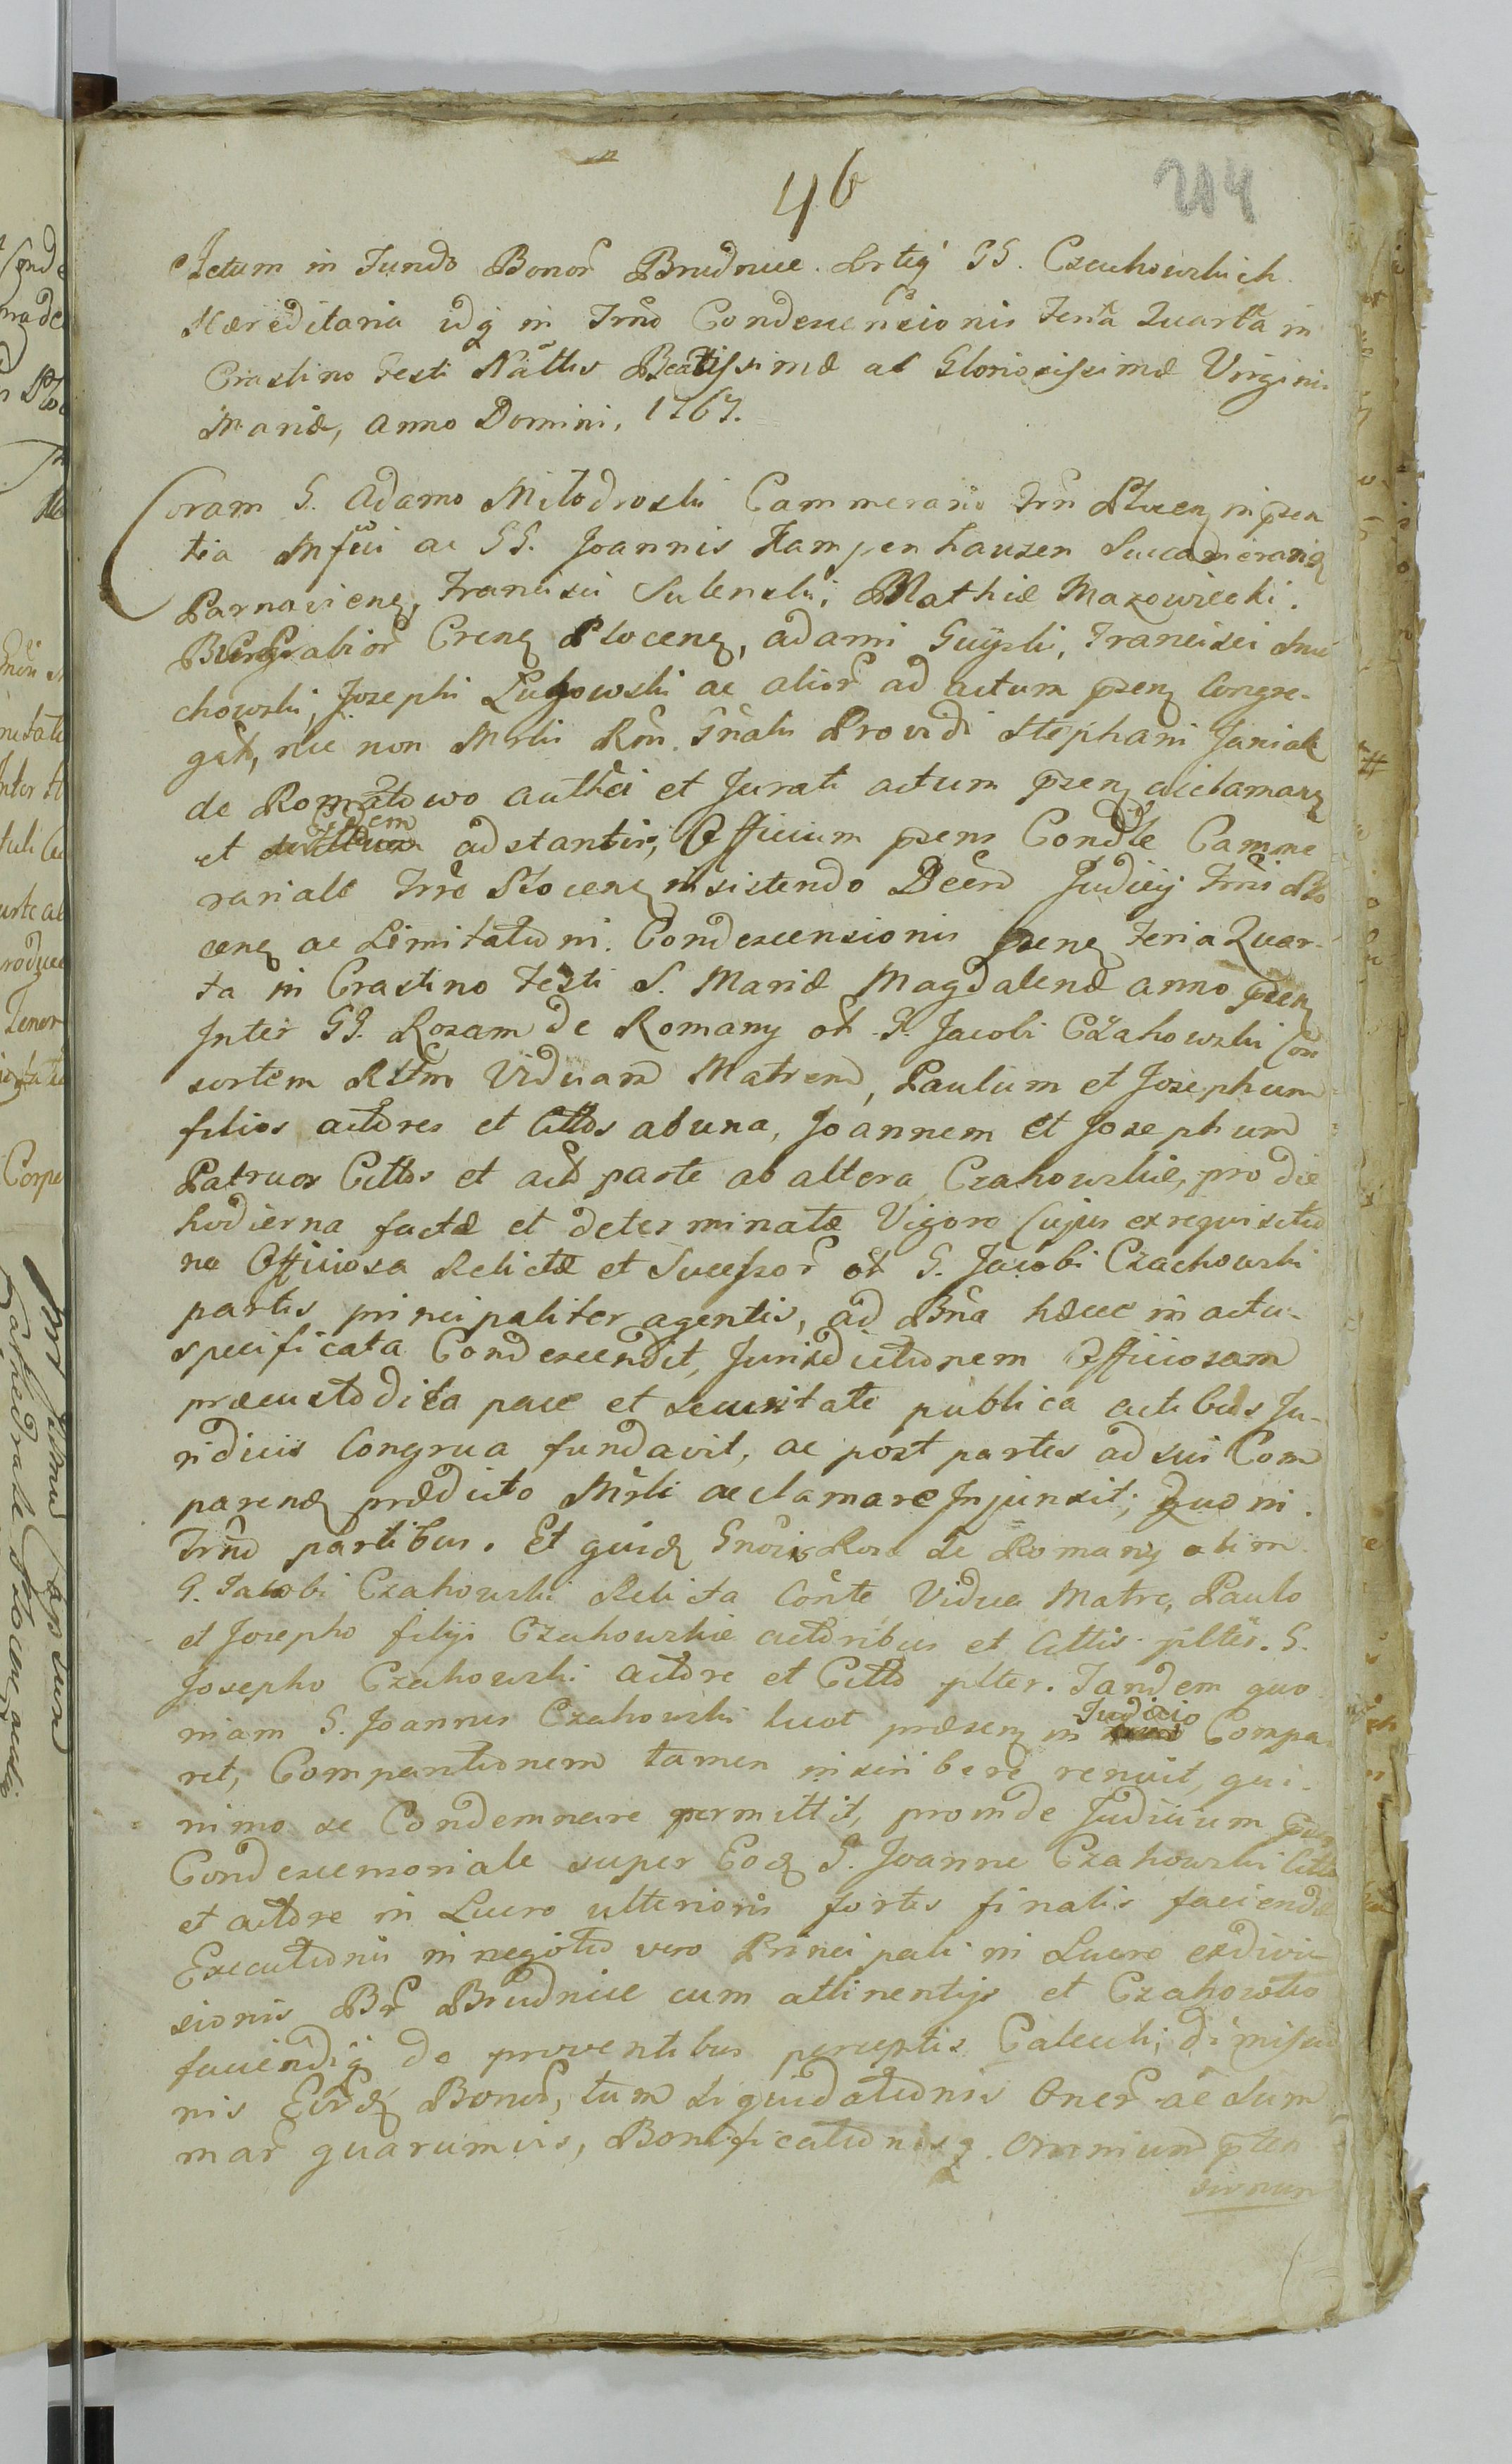 46
204
Actum in Fundo Bonor Brudnice Sortiq GG. Czachowskich
Hæreditaria idq in Trno Condescensionis Feria Quarta in
Crastino Festi Nattis Beatissimæ ac Gloriosissimæ Virginis
Mariæ, Anno Domini, 1767.
Coram G. Adamo Miłodroski Cammerario Trrī Plocen in psen
tia Mfci ac GG. Joannis Kampenhauzen Succamerarij
Parnavien, Francisci Sulenski, Mathiæ Mazowiecki
Burgrabior Cren Plocen, Adami Guyski, Francisci
chowski, Josephi Lugowski ac alior ad actum psen Congre-
gat, nec non Mrli Rni Gnalis Providi Stephani Janiak
de Romatowo authci et Jurati actum psen acclaman
et Eidem adstantis, Officium psens Condle Camme
rariale Trre Plocen insistendo Decro Judicij Trris Plo
cen ac Limitationi Condescensionis psens Feria Quar-
ta in Crastino Festi S. Mariæ Magdalenæ anno psen
Inter GG. Rozam de Romany ol. G. Jacobi Czahowski Con
sortem Rlctm Viduam Matrem, Paulum et Josephum
filios actores et Cittos ab una, Joannem et Josephum
Patruos Cittos et act parte ab altera Czahowskie, pro die
hodierna factæ et determinatæ Vigore Cujus ex requisitio
ne Officiosa Relictæ et Successor ol G. Jacobi Czachowski
partis principaliter agentis, ad Bna hæcce in actu
specificata Condescendit, Jurisdictionem Officiosam
præcustodita pace et securitate publica actibus Ju-
ridicis Congrua fundavit, ac post partes ad sui Com
paren prædicto Mrli acclamare Injunxit; Quo in
Trno partibus. Et quid Gnosis Rosa de Romany olim
G. Jacobi Czahowski Relicta Conte Vidua Matre, Paulo
et Josepho filijs Czahowskie actoribus et Cittis plter. G.
Josepho Czahowski actore et Citto plter. Tandem quo
niam G. Joannes Czahowski licet præsen in Judicio Compa
ret, Comparitionem tamen inscribere renuit, qui
nimo se Condemnare permittit, proinde Judicium psen
Condescensoriale super Eod G. Joanne Czahowski Citto
et actore in Lucro ulterioris fortis finalis faciendæ
Executionis in negotio vero Principali in Lucro exdivi
sionis Br Brudnice cum attinentijs et Czahowo
faciendiq de proventibus perceptis Calculi, dimissio
nis Eord Bonor, tum Liquidationis Oner ac Sum
mar quarumvis, Bonificationisq. Omnium pten
sionum